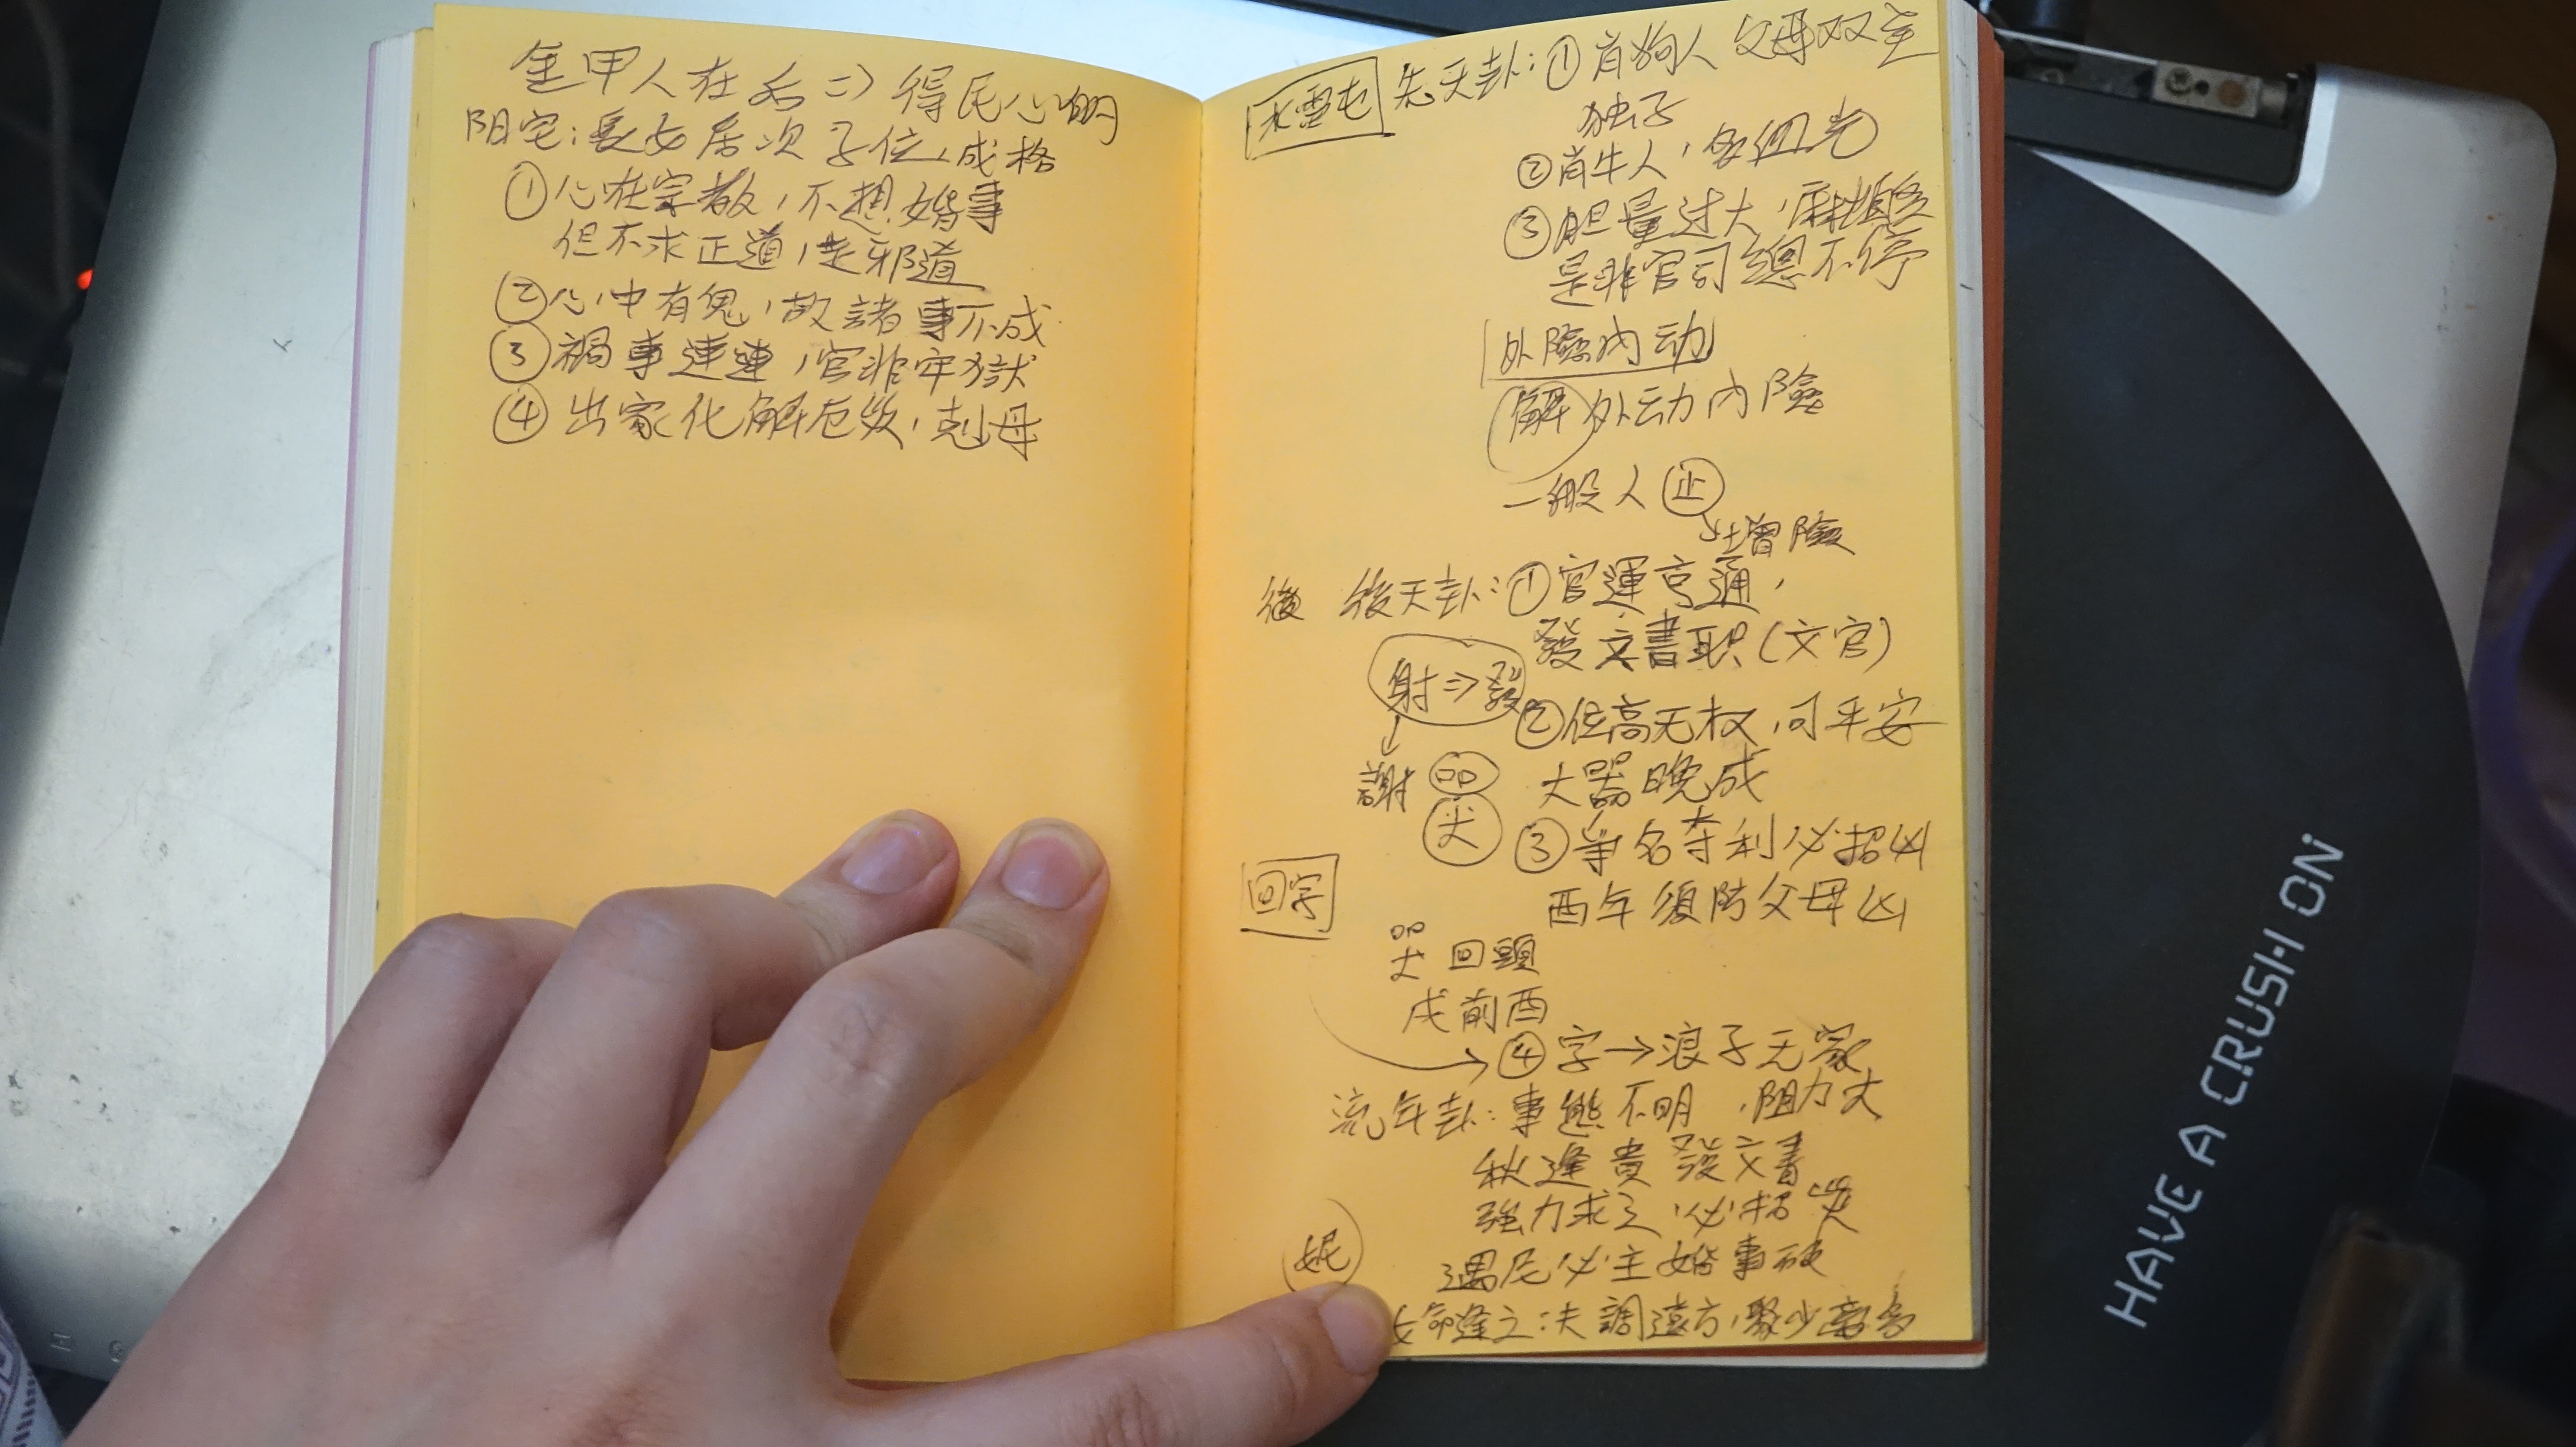 金甲人在后=>得民心的
阳宅:長女居次子位,成格
①心在宗教,不想婚事
但不求正道,走邪道
②心中有鬼,故諸事不成
③禍事連連,官非牢獄
④出家化解厄災,剋母
水雷屯 先天卦:①肖狗人父母双全
独子
②肖牛人,
③胆量过大,麻煩多
是非官司總不停
外險内动
解 外动内險
一般人 止
冒險
後 後天卦:①官運亨通,
發文書职(文官)
射=>發
②位高无权,问平安
謝 吅 犬 大器晚成
③争名夺利必招凶
回字 酉年須防父母凶
哭 回頭
戌前酉
④字→浪子无家
流年卦:事態不明,阻力大
秋逢貴發文書
強力求之,必招災
妮 遇尼必主婚事破
女命逢之:夫調遠方,聚少離多
HAVE A CRUSH ON